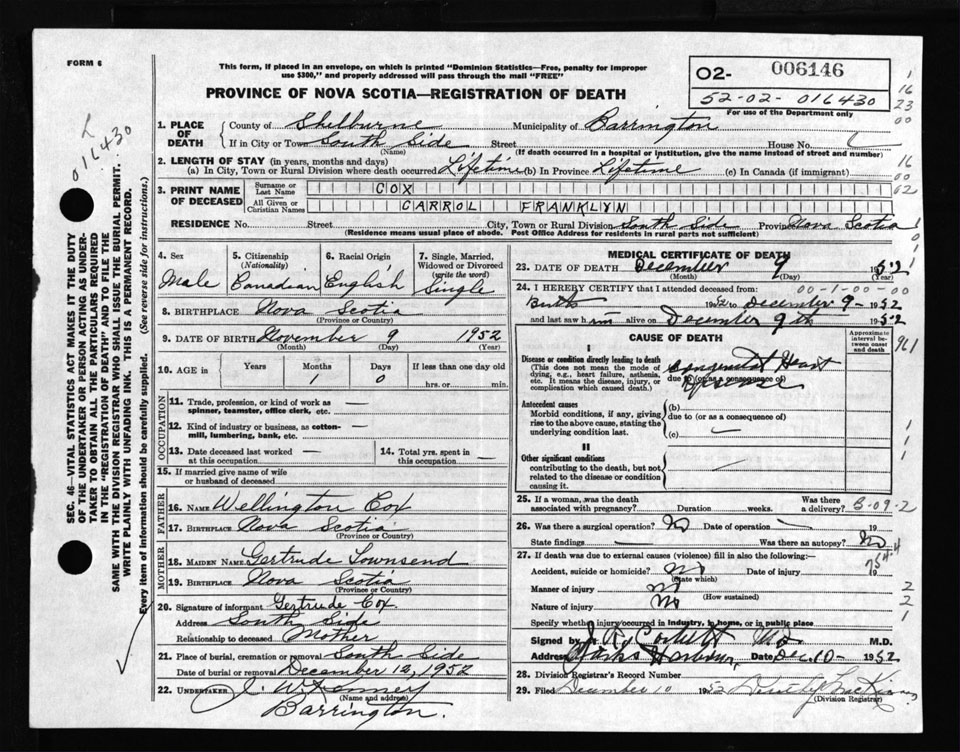 FORM 6
This form, if placed in an envelope, on which is printed "Dominion Statistics—Free, penalty for improper
use $300," and properly addressed will pass through the mail "FREE"
PROVINCE OF NOVA SCOTIA—REGISTRATION OF DEATH
02- 006146
52-02-016430
For use of the Department only
016430
1. PLACE OF DEATH
County of Shelburne Municipality of Barrington
If in City or Town South Side Street House No.
(Name) (If death occurred in a hospital or institution, give the name instead of street and number)
2. LENGTH OF STAY (in years, months and days)
(a) In City, Town or Rural Division where death occurred Lifetime (b) In Province Lifetime (c) In Canada (if immigrant)
3. PRINT NAME OF DECEASED
Surname or Last Name COX
All Given or Christian Names CARROL FRANKLYN
RESIDENCE No. Street City, Town or Rural Division South Side Province Nova Scotia
(Residence means usual place of abode. Post Office Address for residents in rural parts not sufficient)
4. Sex Male
5. Citizenship (Nationality) Canadian
6. Racial Origin English
7. Single, Married, Widowed or Divorced (write the word) Single
8. BIRTHPLACE Nova Scotia
(Province or Country)
9. DATE OF BIRTH November 9 1952
(Month) (Day) (Year)
10. AGE in Years Months Days If less than one day old
1 0 hrs. or min.
OCCUPATION
11. Trade, profession, or kind of work as spinner, teamster, office clerk, etc. —
12. Kind of industry or business, as cotton-mill, lumbering, bank, etc. —
13. Date deceased last worked at this occupation —
14. Total yrs. spent in this occupation —
15. If married give name of wife or husband of deceased
FATHER
16. NAME Wellington Cox
17. BIRTHPLACE Nova Scotia
(Province or Country)
MOTHER
18. MAIDEN NAME Gertrude Townsend
19. BIRTHPLACE Nova Scotia
(Province or Country)
20. Signature of informant Gertrude Cox
Address South Side
Relationship to deceased Mother
21. Place of burial, cremation or removal South Side
Date of burial or removal December 12, 1952
22. UNDERTAKER
(Name and address)
Barrington.
MEDICAL CERTIFICATE OF DEATH
23. DATE OF DEATH December 9 1952
(Month) (Day) (Year)
24. I HEREBY CERTIFY that I attended deceased from: 00-1-00-00
Birth 1952 to December 9- 1952
and last saw him alive on December 9th 1952
CAUSE OF DEATH
Approximate interval between onset and death
I
Disease or condition directly leading to death
(This does not mean the mode of dying, e.g., heart failure, asthenia, etc. It means the disease, injury, or complication which caused death.)
Congenital Heart Disease
due to (or as a consequence of)
Antecedent causes
Morbid conditions, if any, giving rise to the above cause, stating the underlying condition last.
(b)
due to (or as a consequence of)
(c) —
II
Other significant conditions
contributing to the death, but not related to the disease or condition causing it.
25. If a woman, was the death associated with pregnancy? Duration weeks. Was there a delivery? B-09-2
26. Was there a surgical operation? No Date of operation 19
State findings — Was there an autopsy? No
27. If death was due to external causes (violence) fill in also the following:—
Accident, suicide or homicide? No Date of injury 19
(State which)
Manner of injury No
(How sustained)
Nature of injury No
Specify whether injury occurred in industry, in home, or in public place
Signed by M.D. M.D.
Address Clarks Harbour, Date Dec. 10- 1952
28. Division Registrar's Record Number
29. Filed December 10 1952
(Division Registrar)
SEC. 46—VITAL STATISTICS ACT MAKES IT THE DUTY
OF THE UNDERTAKER OR PERSON ACTING AS UNDER-
TAKER TO OBTAIN ALL THE PARTICULARS REQUIRED
IN THE "REGISTRATION OF DEATH" AND TO FILE THE
SAME WITH THE DIVISION REGISTRAR WHO SHALL ISSUE THE BURIAL PERMIT.
WRITE PLAINLY WITH UNFADING INK. THIS IS A PERMANENT RECORD.
Every item of information should be carefully supplied. (See reverse side for instructions.)